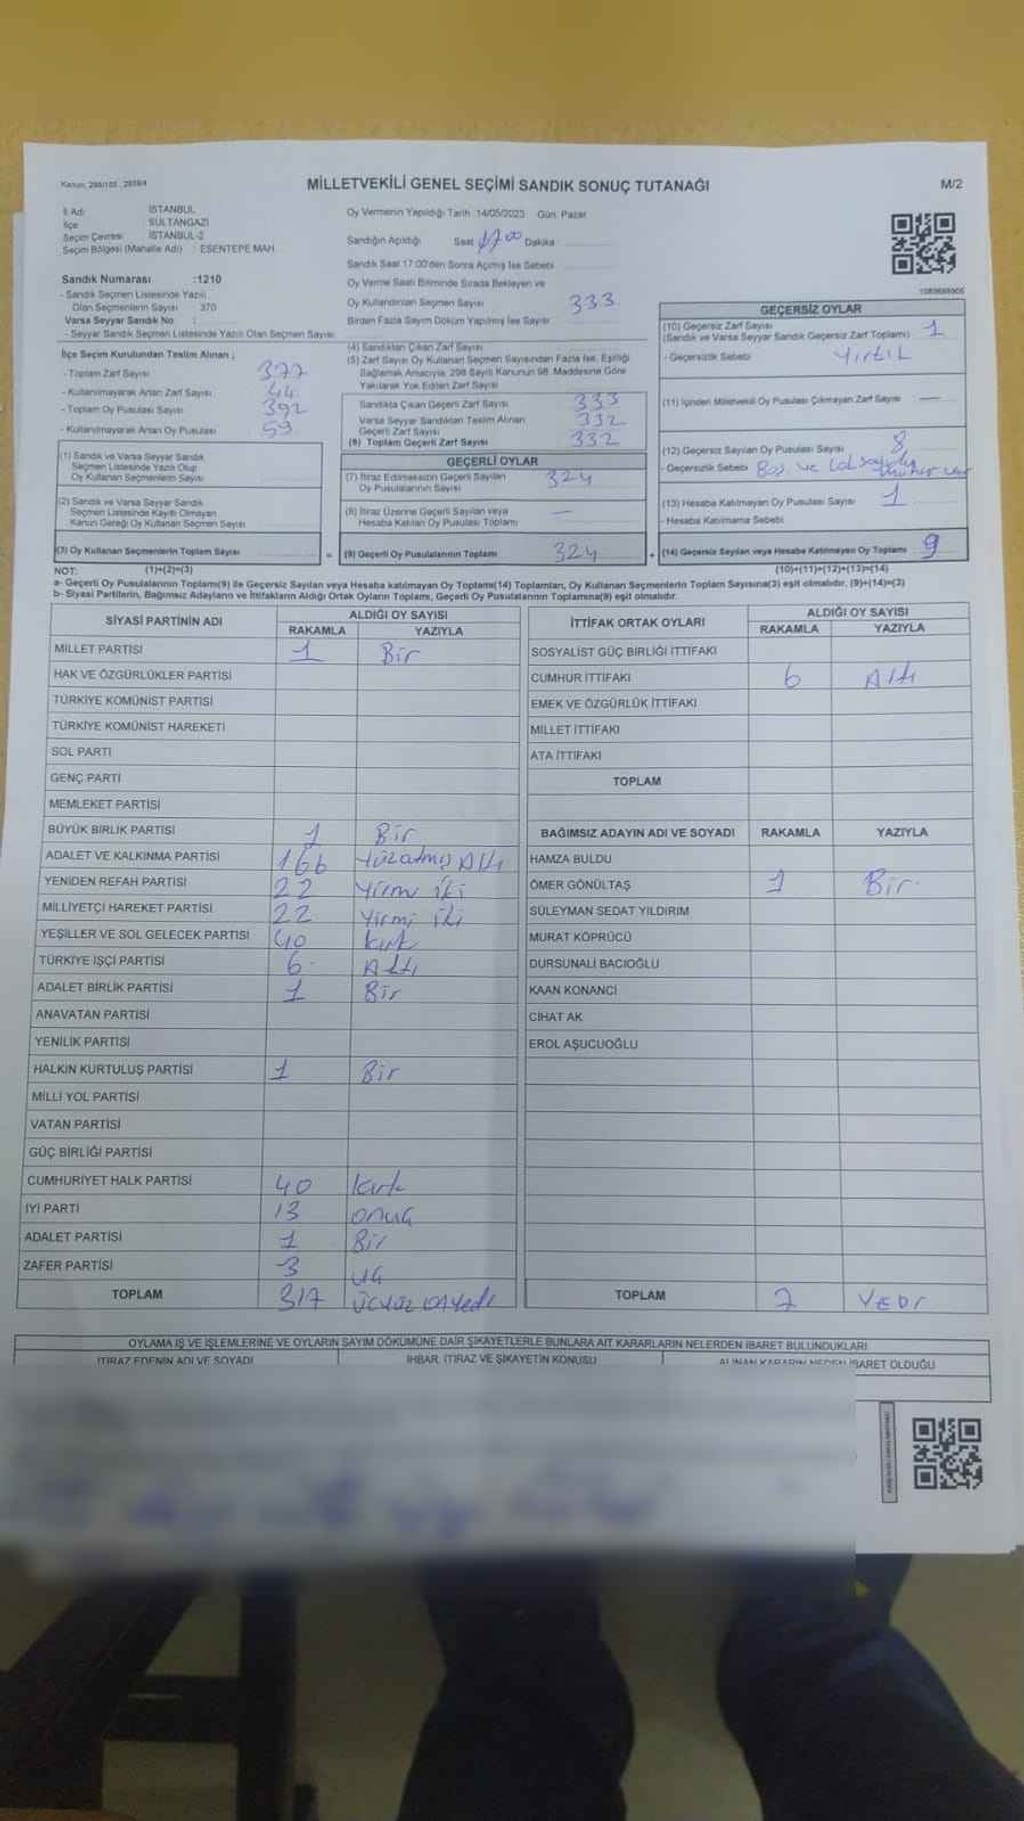 Kanun, 298/105, 2839/4
MİLLETVEKİLİ GENEL SEÇİMİ SANDIK SONUÇ TUTANAĞI
M/2
İl Adı İSTANBUL
İlçe SULTANGAZİ
Seçim Çevresi İSTANBUL-2
Seçim Bölgesi (Mahalle Adı) : ESENTEPE MAH.
Sandık Numarası :1210
- Sandık Seçmen Listesinde Yazılı
Olan Seçmenlerin Sayısı : 370
Varsa Seyyar Sandık No :
- Seyyar Sandık Seçmen Listesinde Yazılı Olan Seçmen Sayısı
İlçe Seçim Kurulundan Teslim Alınan ;
- Toplam Zarf Sayısı 377
- Kullanılmayarak Artan Zarf Sayısı 44
- Toplam Oy Pusulası Sayısı 392
- Kullanılmayarak Artan Oy Pusulası 59
(1) Sandık ve Varsa Seyyar Sandık
Seçmen Listesinde Yazılı Olup
Oy Kullanan Seçmenlerin Sayısı
(2) Sandık ve Varsa Seyyar Sandık
Seçmen Listesinde Kayıtlı Olmayan
Kanun Gereği Oy Kullanan Seçmen Sayısı
(3) Oy Kullanan Seçmenlerin Toplam Sayısı
Oy Vermenin Yapıldığı Tarih : 14/05/2023 Gün: Pazar
Sandığın Açıldığı Saat 17 00 Dakika
Sandık Saat 17:00'den Sonra Açılmış İse Sebebi
Oy Verme Saati Bitiminde Sırada Bekleyen ve
Oy Kullandırılan Seçmen Sayısı 333
Birden Fazla Sayım Döküm Yapılmış İse Sayısı
(4) Sandıktan Çıkan Zarf Sayısı
(5) Zarf Sayısı Oy Kullanan Seçmen Sayısından Fazla İse, Eşitliği
Sağlamak Amacıyla, 298 Sayılı Kanunun 98. Maddesine Göre
Yakılarak Yok Edilen Zarf Sayısı
Sandıkta Çıkan Geçerli Zarf Sayısı 333
Varsa Seyyar Sandıktan Teslim Alınan
Geçerli Zarf Sayısı 332
(6) Toplam Geçerli Zarf Sayısı 332
GEÇERLİ OYLAR
(7) İtiraz Edilmeksizin Geçerli Sayılan
Oy Pusulalarının Sayısı 324
(8) İtiraz Üzerine Geçerli Sayılan veya
Hesaba Katılan Oy Pusulası Toplamı —
= (9) Geçerli Oy Pusulalarının Toplamı 324
GEÇERSİZ OYLAR
(10) Geçersiz Zarf Sayısı
(Sandık ve Varsa Seyyar Sandık Geçersiz Zarf Toplamı) 1
- Geçersizlik Sebebi Yırtık
(11) İçinden Milletvekili Oy Pusulası Çıkmayan Zarf Sayısı —
(12) Geçersiz Sayılan Oy Pusulası Sayısı 8
- Geçersizlik Sebebi Boş ve
(13) Hesaba Katılmayan Oy Pusulası Sayısı 1
- Hesaba Katılmama Sebebi
+ (14) Geçersiz Sayılan veya Hesaba Katılmayan Oy Toplamı 9
NOT: (1)+(2)=(3) (10)+(11)+(12)+(13)=(14)
a- Geçerli Oy Pusulalarının Toplamı(9) ile Geçersiz Sayılan veya Hesaba katılmayan Oy Toplamı(14) Toplamları, Oy Kullanan Seçmenlerin Toplam Sayısına(3) eşit olmalıdır. (9)+(14)=(3)
b- Siyasi Partilerin, Bağımsız Adayların ve İttifakların Aldığı Ortak Oyların Toplamı; Geçerli Oy Pusulalarının Toplamına(9) eşit olmalıdır.
SİYASİ PARTİNİN ADI ALDIĞI OY SAYISI
RAKAMLA YAZIYLA
MİLLET PARTİSİ 1 Bir
HAK VE ÖZGÜRLÜKLER PARTİSİ
TÜRKİYE KOMÜNİST PARTİSİ
TÜRKİYE KOMÜNİST HAREKETİ
SOL PARTİ
GENÇ PARTİ
MEMLEKET PARTİSİ
BÜYÜK BİRLİK PARTİSİ 1 Bir
ADALET VE KALKINMA PARTİSİ 166 Yüzatmış Altı
YENİDEN REFAH PARTİSİ 22 Yirmi iki
MİLLİYETÇİ HAREKET PARTİSİ 22 Yirmi iki
YEŞİLLER VE SOL GELECEK PARTİSİ 40 kırk
TÜRKİYE İŞÇİ PARTİSİ 6 Altı
ADALET BİRLİK PARTİSİ 1 Bir
ANAVATAN PARTİSİ
YENİLİK PARTİSİ
HALKIN KURTULUŞ PARTİSİ 1 Bir
MİLLİ YOL PARTİSİ
VATAN PARTİSİ
GÜÇ BİRLİĞİ PARTİSİ
CUMHURİYET HALK PARTİSİ 40 kırk
İYİ PARTİ 13 onüç
ADALET PARTİSİ 1 Bir
ZAFER PARTİSİ 3 üç
TOPLAM 317 üçyüz onyedi
İTTİFAK ORTAK OYLARI ALDIĞI OY SAYISI
RAKAMLA YAZIYLA
SOSYALİST GÜÇ BİRLİĞİ İTTİFAKI
CUMHUR İTTİFAKI 6 Altı
EMEK VE ÖZGÜRLÜK İTTİFAKI
MİLLET İTTİFAKI
ATA İTTİFAKI
TOPLAM
BAĞIMSIZ ADAYIN ADI VE SOYADI RAKAMLA YAZIYLA
HAMZA BULDU
ÖMER GÖNÜLTAŞ 1 Bir
SÜLEYMAN SEDAT YILDIRIM
MURAT KÖPRÜCÜ
DURSUNALİ BACIOĞLU
KAAN KONANCİ
CİHAT AK
EROL AŞUCUOĞLU
TOPLAM 7 YEDİ
OYLAMA İŞ VE İŞLEMLERİNE VE OYLARIN SAYIM DÖKÜMÜNE DAİR ŞİKAYETLERLE BUNLARA AİT KARARLARIN NELERDEN İBARET BULUNDUKLARI
İTİRAZ EDENİN ADI VE SOYADI İHBAR, İTİRAZ VE ŞİKAYETİN KONUSU ALINAN KARARIN NEDEN İBARET OLDUĞU